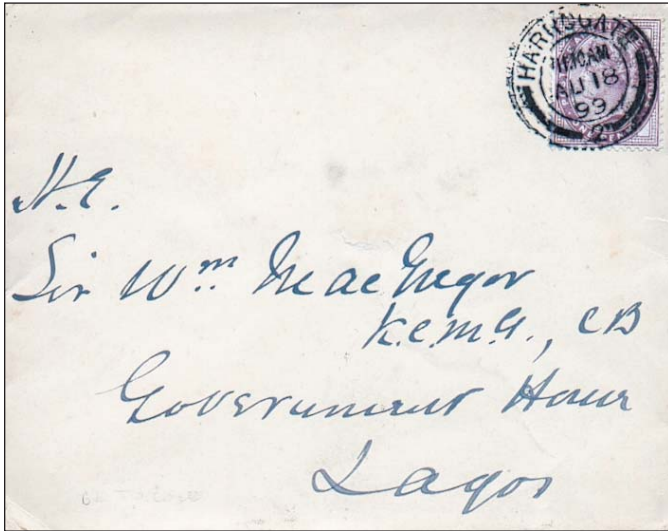 HARROGATE
AU 18
99
H.E.
Sir Wm MacGregor
K.C.M.G., CB
Government House
Lagos